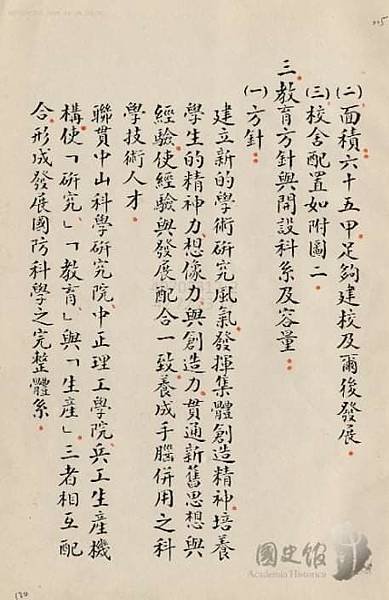 (二)面積六十五甲足夠建校及爾後發展。
(三)校舍配置如附圖二。
三.教育方針與開設科系及容量:
(一)方針:
建立新的學術研究風氣,發揮集體創造精神,培養
學生的精神力,想像力與創造力,貫通新舊思想與
經驗,使經驗與發展配合一致,養成手腦併用之科
學技術人才。
聯貫中山科學研究院,中正理工學院,兵工生產機
構,使「研究」、「教育」、與「生產」三者相互配
合,形成發展國防科學之完整體系。
國史館
Academia Historica